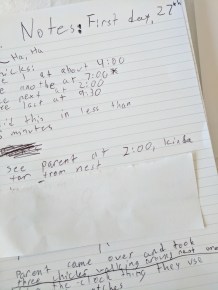 Notes: First day, 27th
Ha, Ha
icks:
at about 4:00
anothe at 7:00 *
next at 2:00
last at 9:30
this in less than
minutes
see parent at 2:00, kinba
far from nest
Parent came over and took
three chicks walking
the clock thing they use